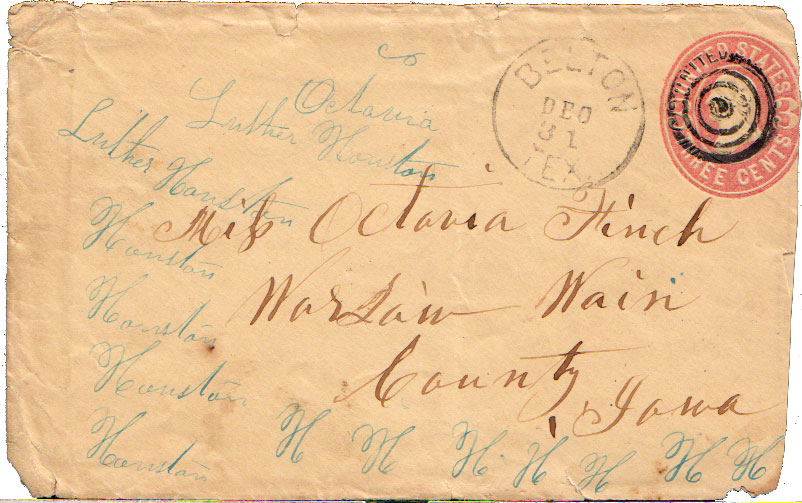 BELTON
DEC
31
TEX.
UNITED STATES
THREE CENTS
3
Octavia
Luther Houston
Luther Houston
Miss Octavia Finch
Houston
Warsaw Wain
Houston
County,
Houston
Iowa
Houston
H H H H H H H